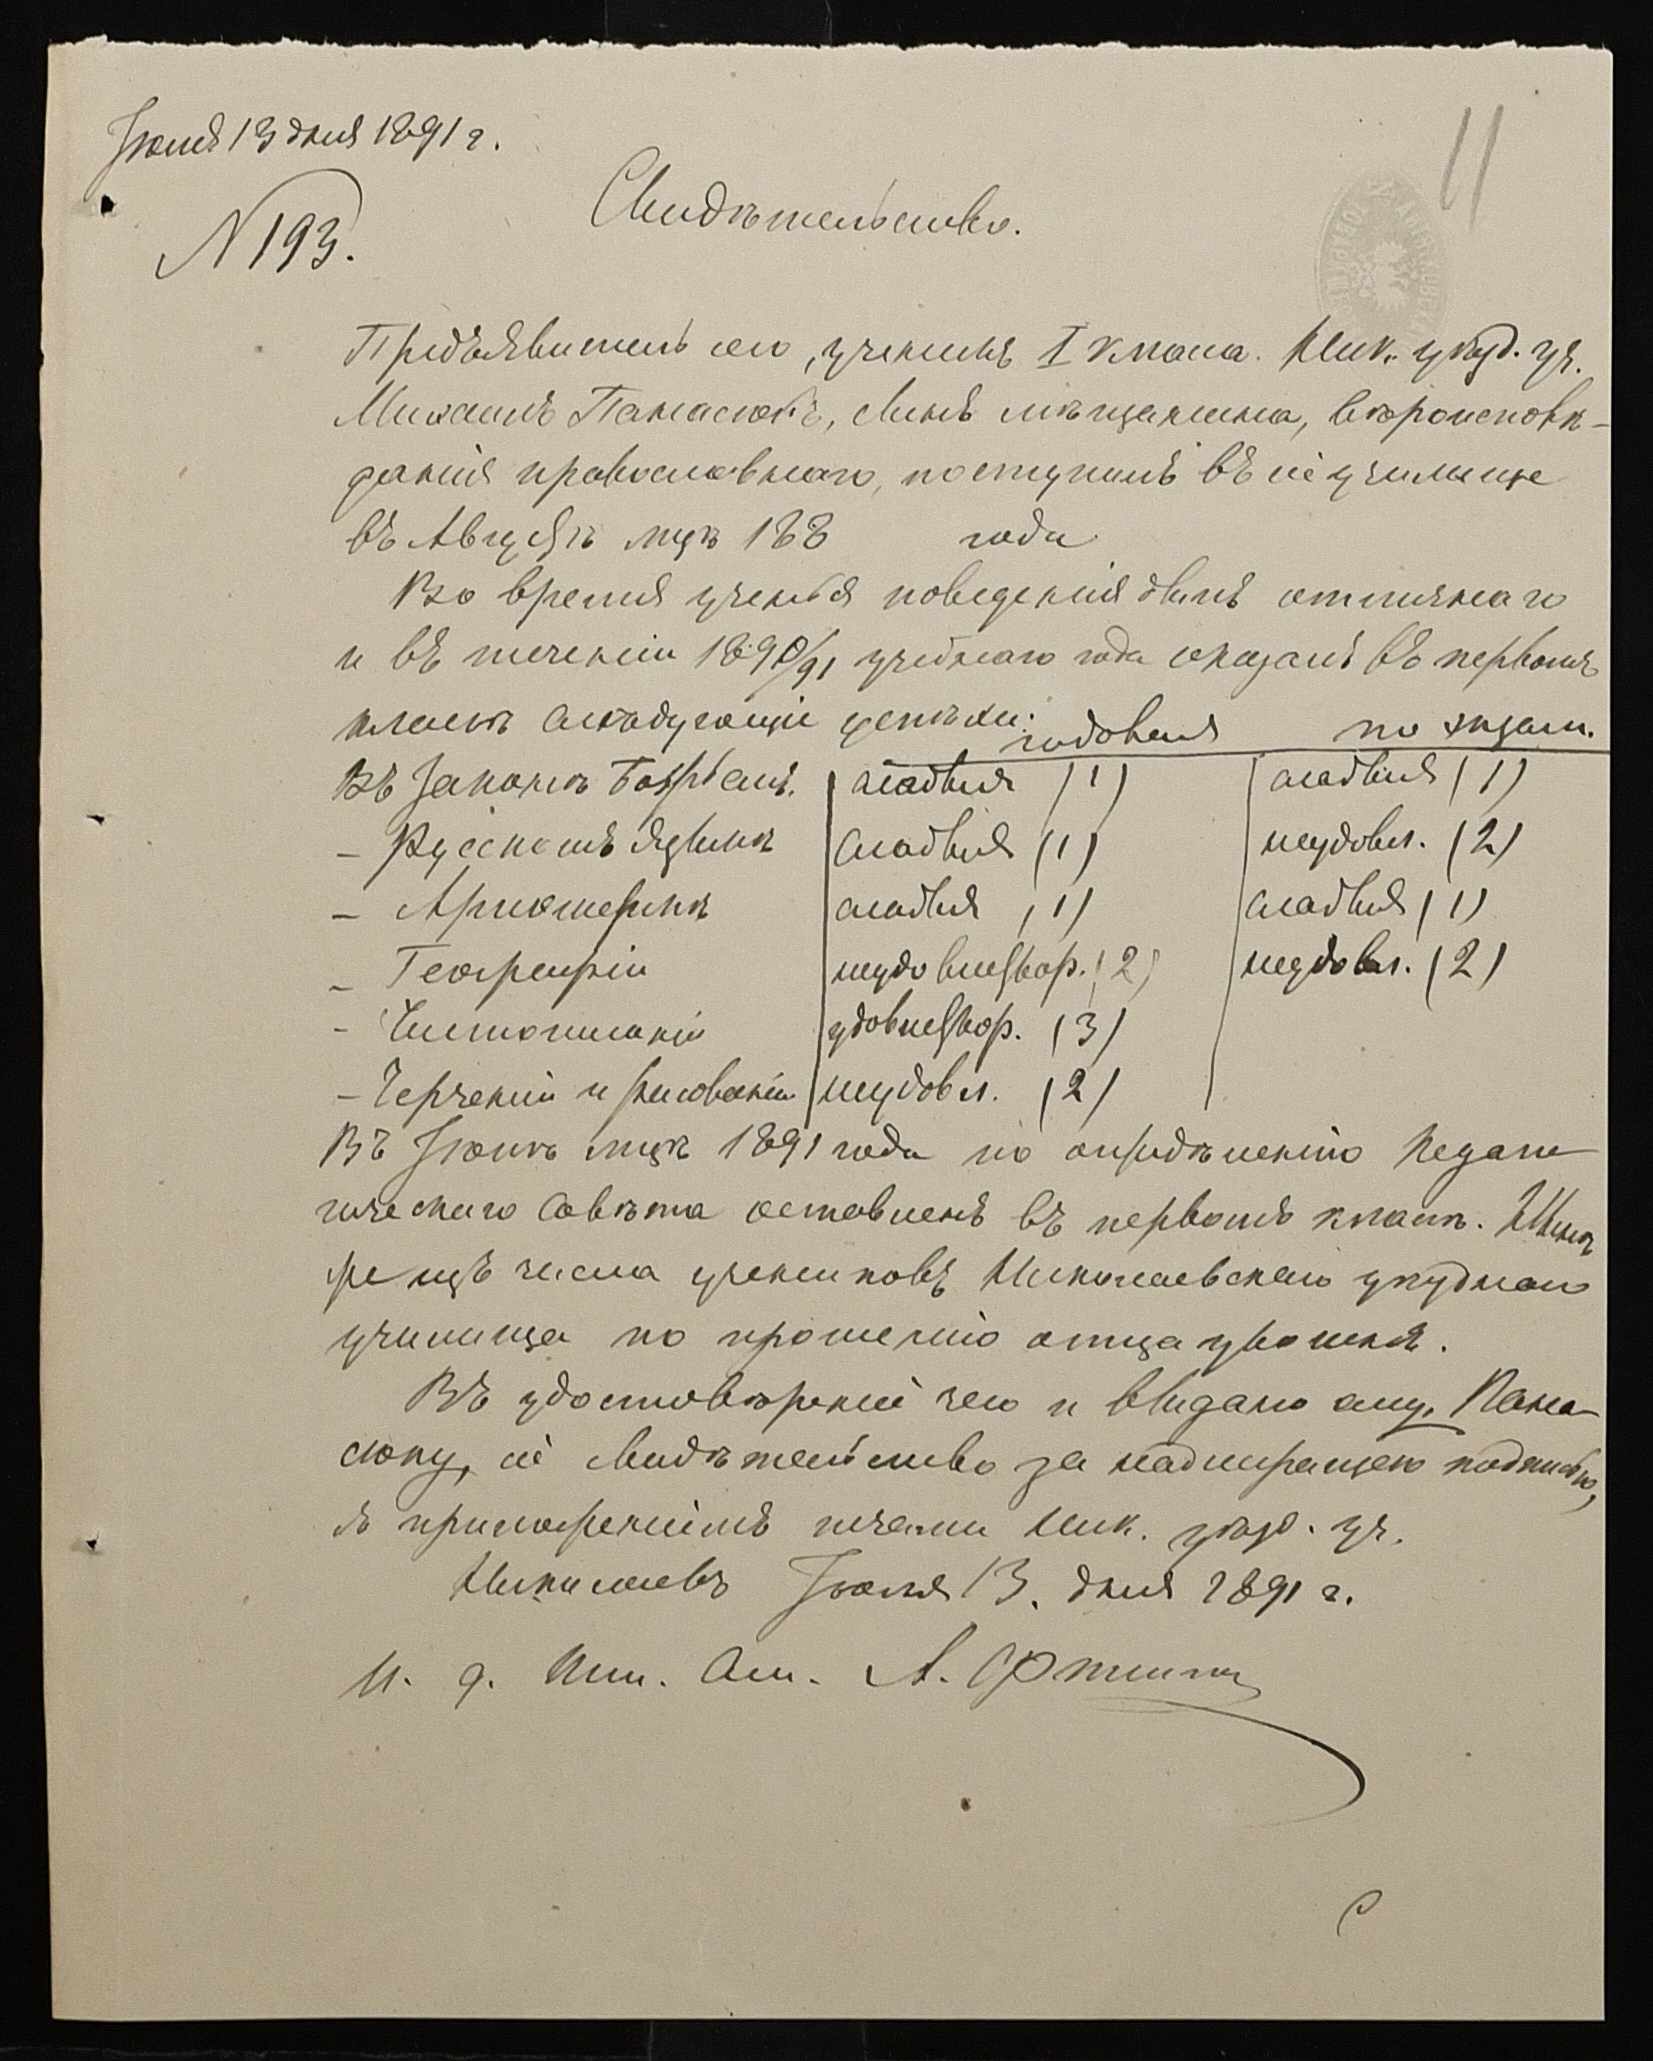 Іюля 13 дня 1891 г.
11
N 193.
Свидѣтельство.
Предъявитель сего, ученикъ I класса. Ник. уѣзд. уч.
Михаилъ Панасюкъ, сынъ мѣщанина, вѣроисповѣ-
данія православнаго, поступилъ въ сіе училище
въ Августѣ мцѣ 188 года
Во время ученья поведенія былъ отличнаго
и въ теченіи 1890/91 учебнаго года оказалъ въ первомъ
классѣ слѣдующіе успѣхи: годовыя по экзам.
Въ Законѣ Божьемъ. слабыя (1) слабыя (1)
– Русскомъ языкѣ слабыя (1) неудовл. (2)
– Ариѳметикѣ слабыя (1) слабыя (1)
– Географіи неудовлетвор. (2) неудовл. (2)
– Чистописаніи удовлетвор. (3)
– Черченіи и рисованіи неудовл. (2)
Въ Іюнѣ мцѣ 1891 года по опредѣленію Педаго
гическаго Совѣта оставленъ въ первомъ классѣ. Нынѣ
же изъ числа учениковъ Николаевскаго уѣзднаго
училища по прошенію отца уволенъ.
Въ удостовѣреніе чего и выдано ему, Пана-
сюку, сіе свидѣтельство за надлежащею подписью,
съ приложеніемъ печати Ник. уѣзд. уч.
Николаевъ Іюля 13. дня 1891 г.
И. д. Шт. См. А.